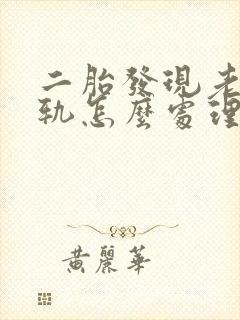 二胎發現老
軌怎麼處理
黃麗華